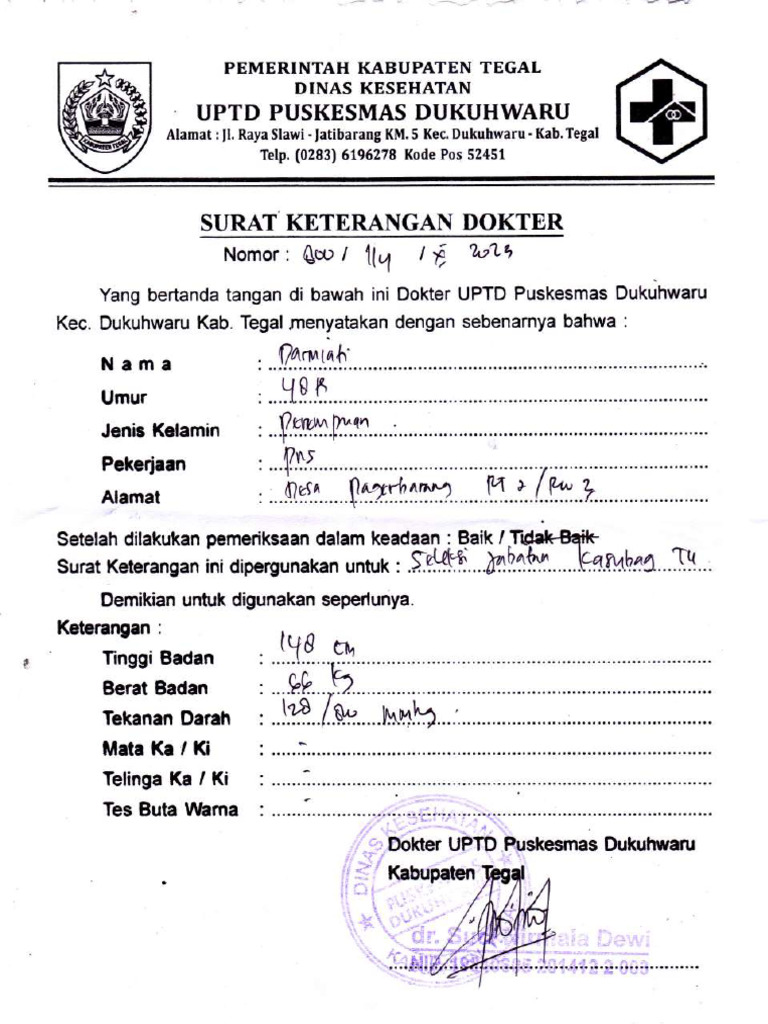 PEMERINTAH KABUPATEN TEGAL
DINAS KESEHATAN
UPTD PUSKESMAS DUKUHWARU
Alamat : Jl. Raya Slawi - Jatibarang KM. 5 Kec. Dukuhwaru - Kab. Tegal
Telp. (0283) 6196278 Kode Pos 52451
KABUPATEN TEGAL
SURAT KETERANGAN DOKTER
Nomor : 800 / 114 / XI 2023
Yang bertanda tangan di bawah ini Dokter UPTD Puskesmas Dukuhwaru
Kec. Dukuhwaru Kab. Tegal menyatakan dengan sebenarnya bahwa :
Nama : Darmiati
Umur : 48
Jenis Kelamin : Perempuan
Pekerjaan : PNS
Alamat : Desa Pagerbarang RT 2 / RW 3
Setelah dilakukan pemeriksaan dalam keadaan : Baik / Tidak Baik
Surat Keterangan ini dipergunakan untuk : Seleksi Jabatan Kasubag TU
Demikian untuk digunakan seperlunya.
Keterangan :
Tinggi Badan : 148 cm
Berat Badan : 66 kg
Tekanan Darah : 128 / 80 mmHg
Mata Ka / Ki : -
Telinga Ka / Ki : -
Tes Buta Warna : -
Dokter UPTD Puskesmas Dukuhwaru
Kabupaten Tegal
DINAS KESEHATAN
PUSKESMAS
DUKUHWARU
dr. Suci Nirmala Dewi
NIP. 201412 2 003